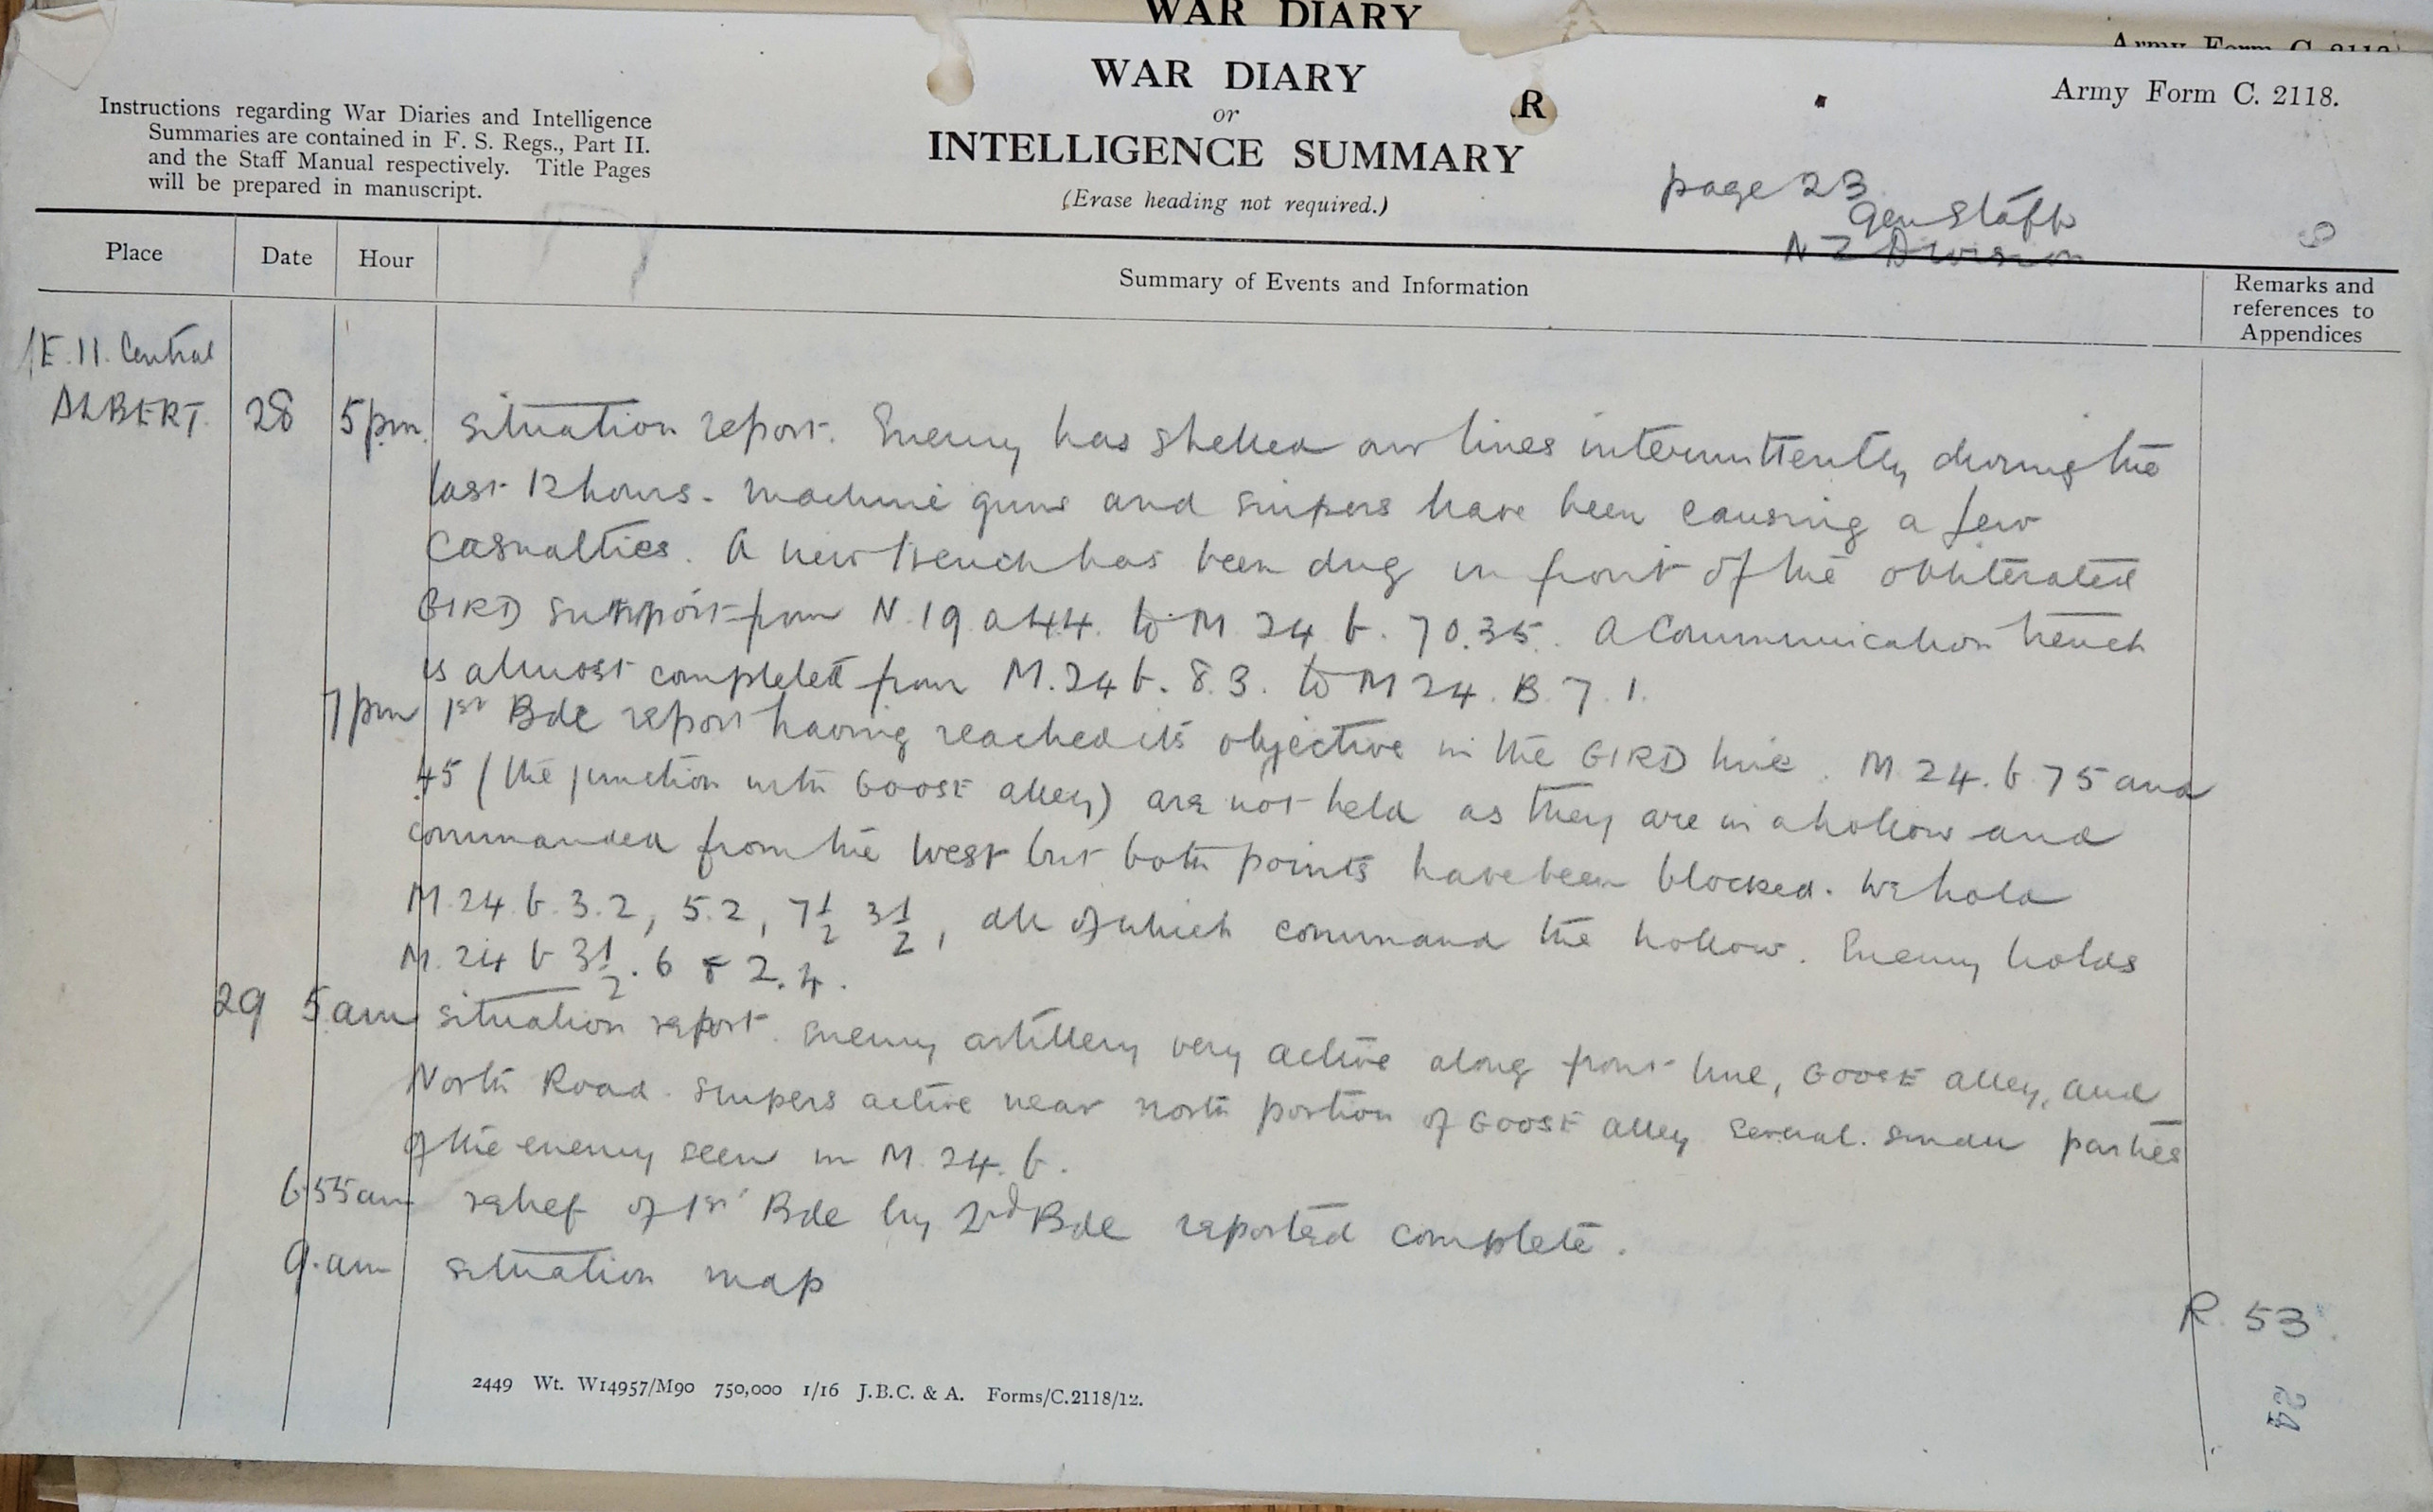 WAR DIARY
Army Form C. 2118.
WAR DIARY
or
INTELLIGENCE SUMMARY
(Erase heading not required.)
R
Army Form C. 2118.
Instructions regarding War Diaries and Intelligence
Summaries are contained in F. S. Regs., Part II.
and the Staff Manual respectively. Title Pages
will be prepared in manuscript.
page 23
Gen Staff
N Z Division
Place Date Hour Summary of Events and Information Remarks and
references to
Appendices
E. 11. Central
ALBERT. 28 5pm. Situation report. Enemy has shelled our lines intermittently during the
last 12 hours. Machine guns and snipers have been causing a few
casualties. A new trench has been dug in front of the obliterated
GIRD support from N. 19. a 44. to M. 24. b. 70.35. A Communication trench
is almost completed from M. 24 b. 8. 3. to M 24. B. 7. 1.
7pm 1st Bde report having reached its objective in the GIRD line. M. 24. b 75 and
45 (the junction with GOOSE alley) are not held as they are in a hollow and
commanded from the West but both points have been blocked. We hold
M. 24. b. 3. 2, 5. 2, 7½ 3½, all of which command the hollow. Enemy holds
M. 24 b 3½. 6 & 2. 4.
29 5am Situation report. Enemy artillery very active along front line, GOOSE alley, and
North Road. Snipers active near north portion of GOOSE alley. Several. small parties
of the enemy seen in M. 24. b.
6.55am relief of 1st Bde by 2nd Bde reported complete.
9. am situation map
R. 53.
24
2449 Wt. W14957/M90 750,000 1/16 J.B.C. & A. Forms/C.2118/12.